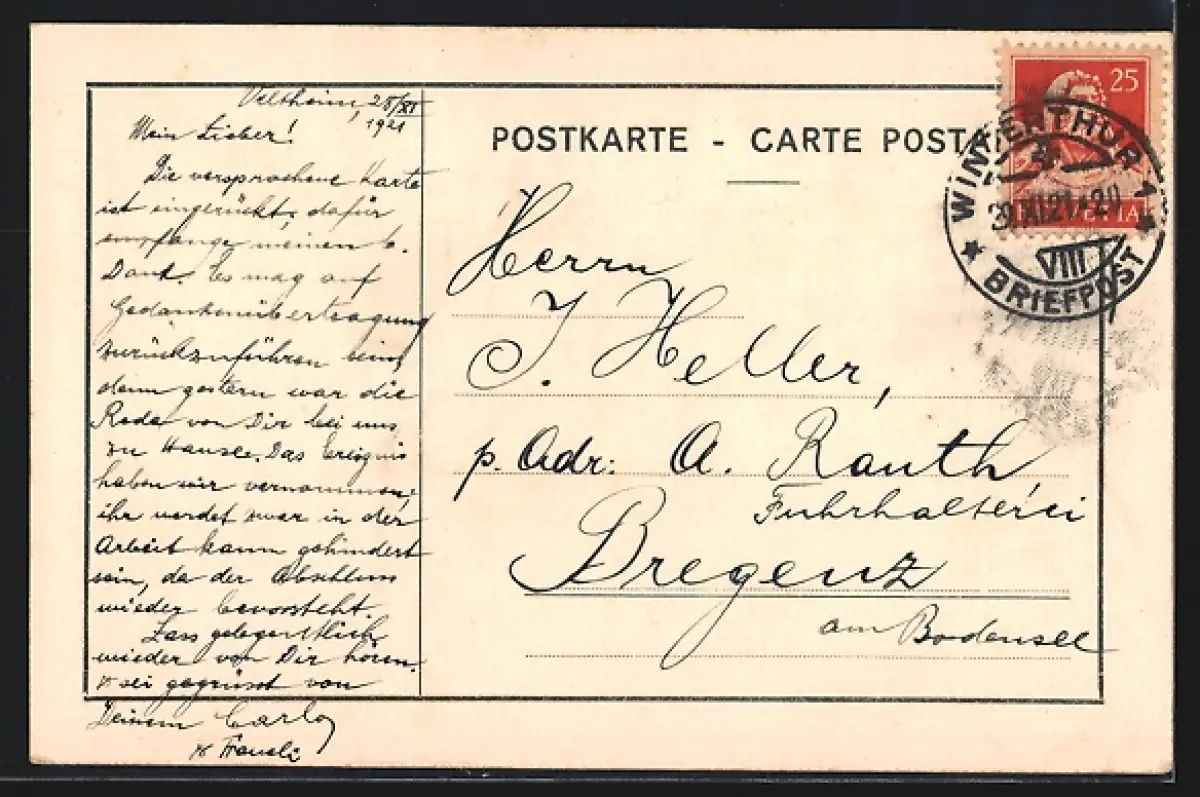 Veltheim, 28/XI
1921
Mein Lieber!
Die versprochene Karte
ist eingerückt, dafür
empfange meinen b.
Dank. Es mag auf
Gedankenübertragung
zurückzuführen sein,
denn gestern war die
Rede von Dir bei uns
zu Hausee. Das Ereignis
haben wir vernommen;
ihr werdet zwar in der
Arbeit kaum gehindert
sein, da der Abschluss
wieder bevorsteht.
Lass gelegentlich
wieder von Dir hören.
& sei gegrüsst von
Deinem Carlo
& Frauli
POSTKARTE - CARTE POSTA
Herrn
J. Heller,
p. Adr: A. Rauth,
Fuhrhalterei
Bregenz
am Bodensee
25
HELVETIA
WINTERTHUR 1
29.XI.21-20
VIII
BRIEFPOST